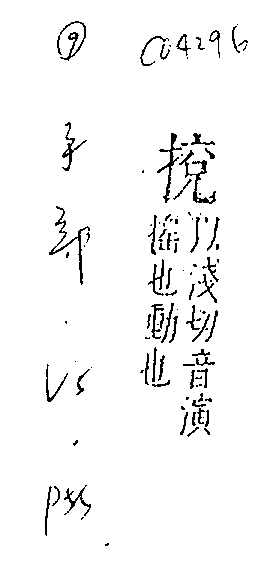 ⑨
C04296
以淺切音演
搖也動也
手部